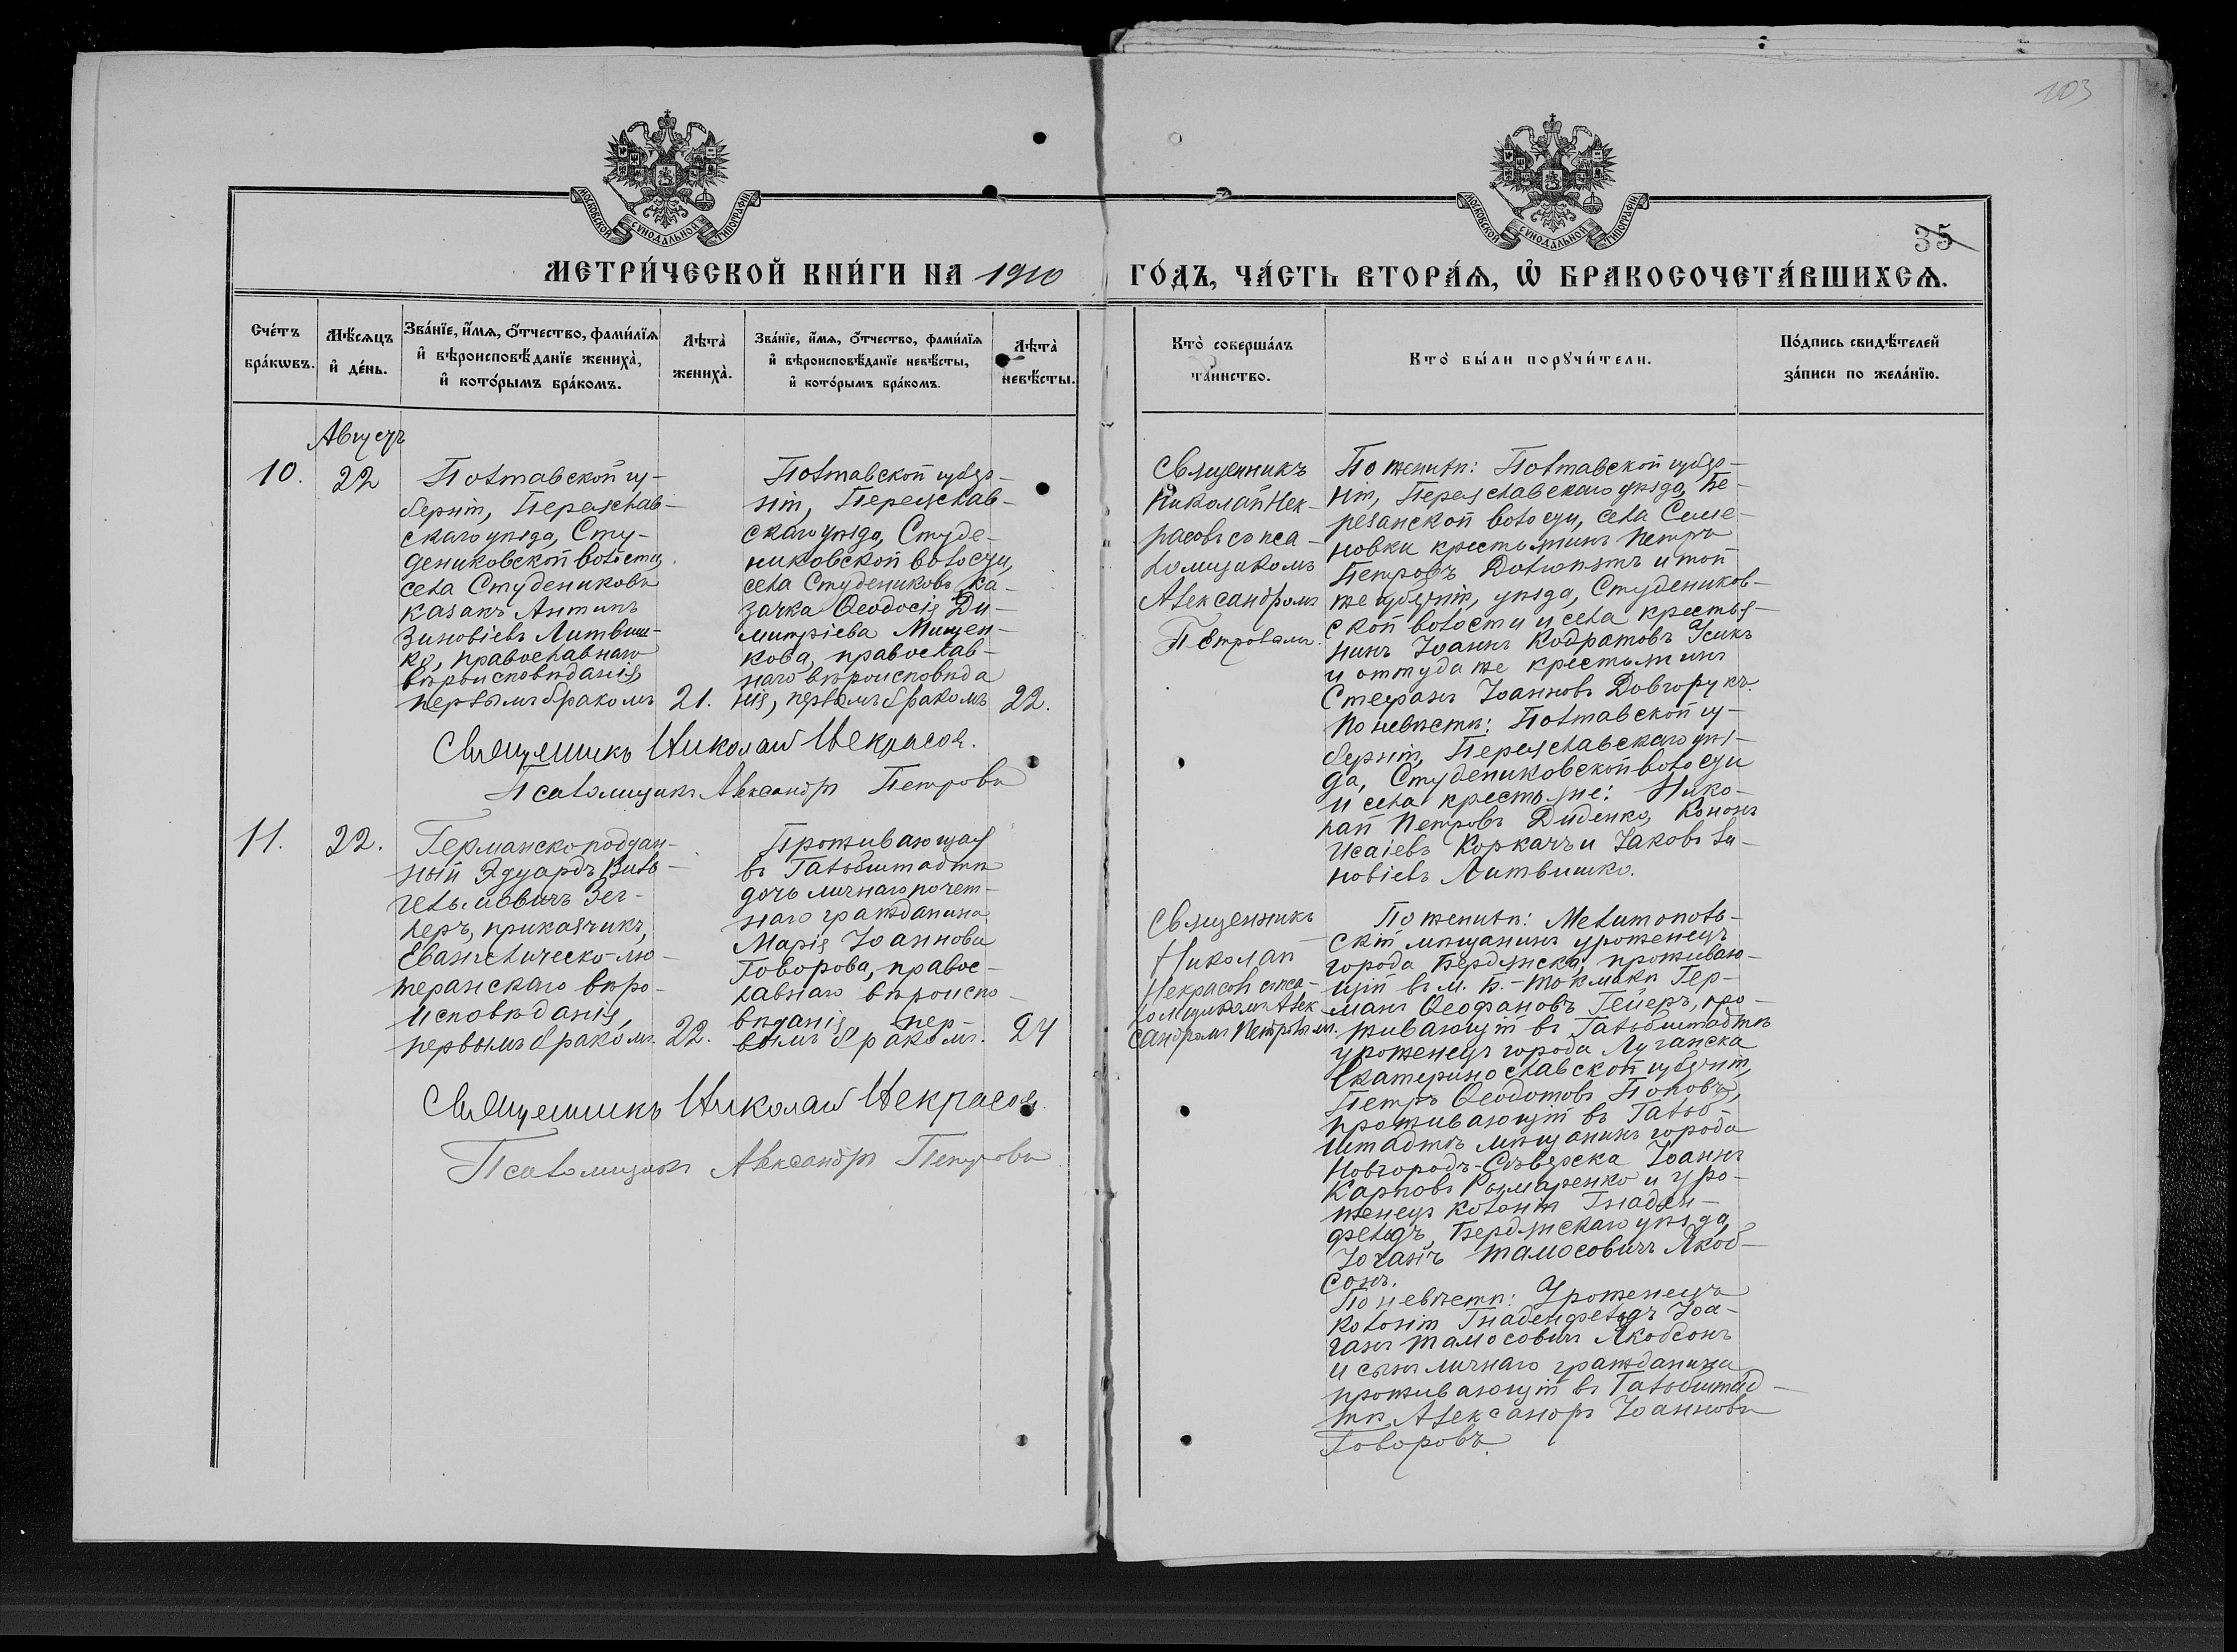 103
35
МОСКОВСКОЙ СѴНОДАЛЬНОЙ ТИПОГРАФІИ
МОСКОВСКОЙ СѴНОДАЛЬНОЙ ТИПОГРАФІИ
МЕТРИ́ЧЕСКОЙ КНИ́ГИ НА 1910
ГО́ДЪ, ЧА́СТЬ ВТОРА́Ѧ, Ѽ БРАКОСОЧЕТА́ВШИХСѦ.
Сче́тъ
бра́кѡвъ.
Мѣ́сѧцъ
и҆ де́нь.
Зва́нїе, и҆́мѧ, ѻ҆́тчество, фами́лїѧ
и҆ вѣроисповѣ́данїе жениха̀,
и҆ кото́рымъ бра́комъ.
Лѣта̀
жениха̀.
Зва́нїе, и҆́мѧ, ѻ҆́тчество, фами́лїѧ
и҆ вѣроисповѣ́данїе невѣ́сты,
и҆ кото́рымъ бра́комъ.
Лѣта̀
невѣ́сты.
Кто̀ соверша́лъ
та́инство.
Кто̀ бы́ли порꙋчи́тели.
По́дпись свидѣ́телей
за́писи по жела́нїю.
Августъ
10.
22
Полтавской гу-
берніи, Переяслав-
скаго уѣзда, Сту-
дениковской волости,
села Студениковъ
казакъ Антипъ
Зиновіевъ Литвиш-
ко, православнаго
вѣроисповѣданія,
первымъ бракомъ
21.
Полтавской губер-
ніи, Переяслав-
скаго уѣзда, Студе-
никовской волости,
села Студениковъ ка-
зачка Ѳеодосія Ди-
митріева Мищен-
кова, православ-
наго вѣроисповѣда
нія, первымъ бракомъ
22.
Священникъ Николай Некрасовъ.
Псаломщикъ Александръ Петровъ
Священникъ
Николай Нек-
расовъ съ пса-
ломщикомъ
Александромъ
Петровымъ.
По женихѣ: Полтавской губер-
ніи, Переяславскаго уѣзда, Бе-
резанской волости, села Семе-
новки крестьянинъ Петръ
Петровъ и той
же губерніи, уѣзда, Студеников-
ской волости и села крестья-
нинъ Іоаннъ Кодратовъ Усикъ
и оттуда же крестьянинъ
Стефанъ Іоанновъ Довгорукъ.
По невѣстѣ: Полтавской гу-
берніи, Переяславскаго уѣз-
да, Студениковской волости
и села крестьяне: Нико-
лай Петровъ Диденко, Кононъ
Исаіевъ Коркачъ и Іаковъ Зи-
новіевъ Литвишко.
11.
22.
Германскоподдан-
ный Эдуардъ Виль-
гельмовичъ Зег-
леръ, приказчикъ,
Евангелическо-лю-
теранскаго вѣро-
исповѣданія,
первымъ бракомъ.
22.
Проживающая
въ Гальбштадтѣ
дочь личнаго почет-
наго гражданина
Марія Іоаннова
Говорова, правос-
лавнаго вѣроиспо-
вѣданія, пер-
вымъ бракомъ.
24
Священникъ Николай Некрасовъ.
Псаломщикъ Александръ Петровъ
Священникъ
Николай
Некрасовъ съ пса-
ломщикомъ Алек-
сандромъ Петровымъ.
По женихѣ: Мелитополь-
скій мѣщанинъ уроженецъ
города Бердянска, проживаю-
щій въ м. Б.-Токмакѣ Гер-
манъ Ѳеофановъ Гейеръ, про-
живающій въ Гальбштадтѣ
уроженецъ города Луганска
Екатеринославской губерніи,
Петръ Ѳеодотовъ Поповъ,
проживающій въ Гальб-
штадтѣ мѣщанинъ города
Новгородъ-Сѣверска Іоаннъ
Карповъ Рымаренко и уро-
женецъ колоніи Гнаден-
фельдъ, Бердянскаго уѣзда,
Іоганъ Тамосовичъ Якоб-
сонъ.
По невѣстѣ: Уроженецъ
колоніи Гнаденфельдъ Іоа-
ганъ Тамосовичъ Якобсонъ
и сынъ личнаго гражданина
проживающій въ Гальбштад-
тѣ Александръ Іоанновъ
Говоровъ.